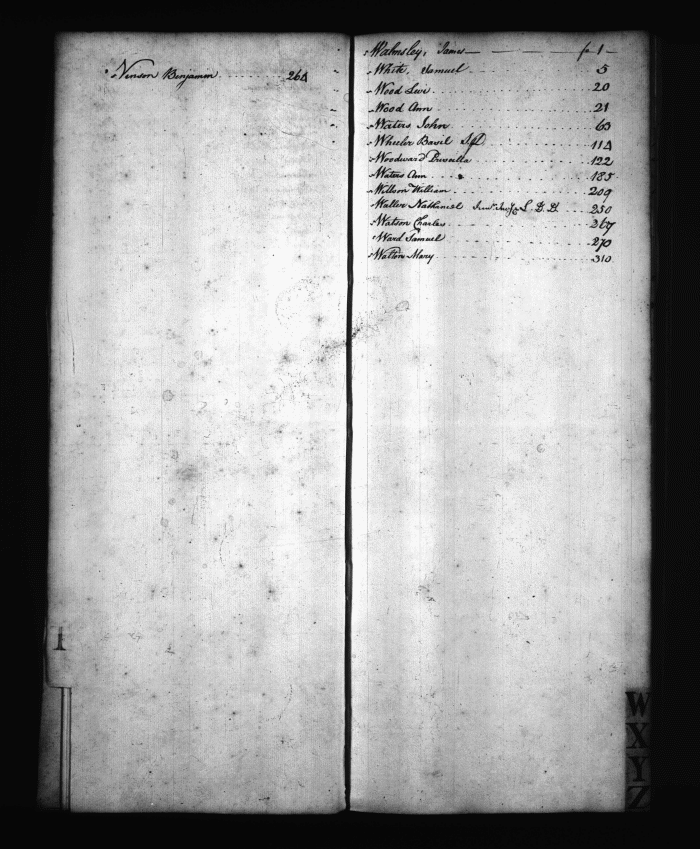 Vinson Benjamin 264
1
Walmsley, James fo 1
White, Samuel 5
Wood Levi 20
Wood Ann 21
Waters John 63
Wheeler Basil 114
Woodward Priscilla 122
Waters Ann 185
Willson William 209
Waller Nathaniel 250
Watson Charles 267
Ward Samuel 270
Walton Mary 310
W
X
Y
Z